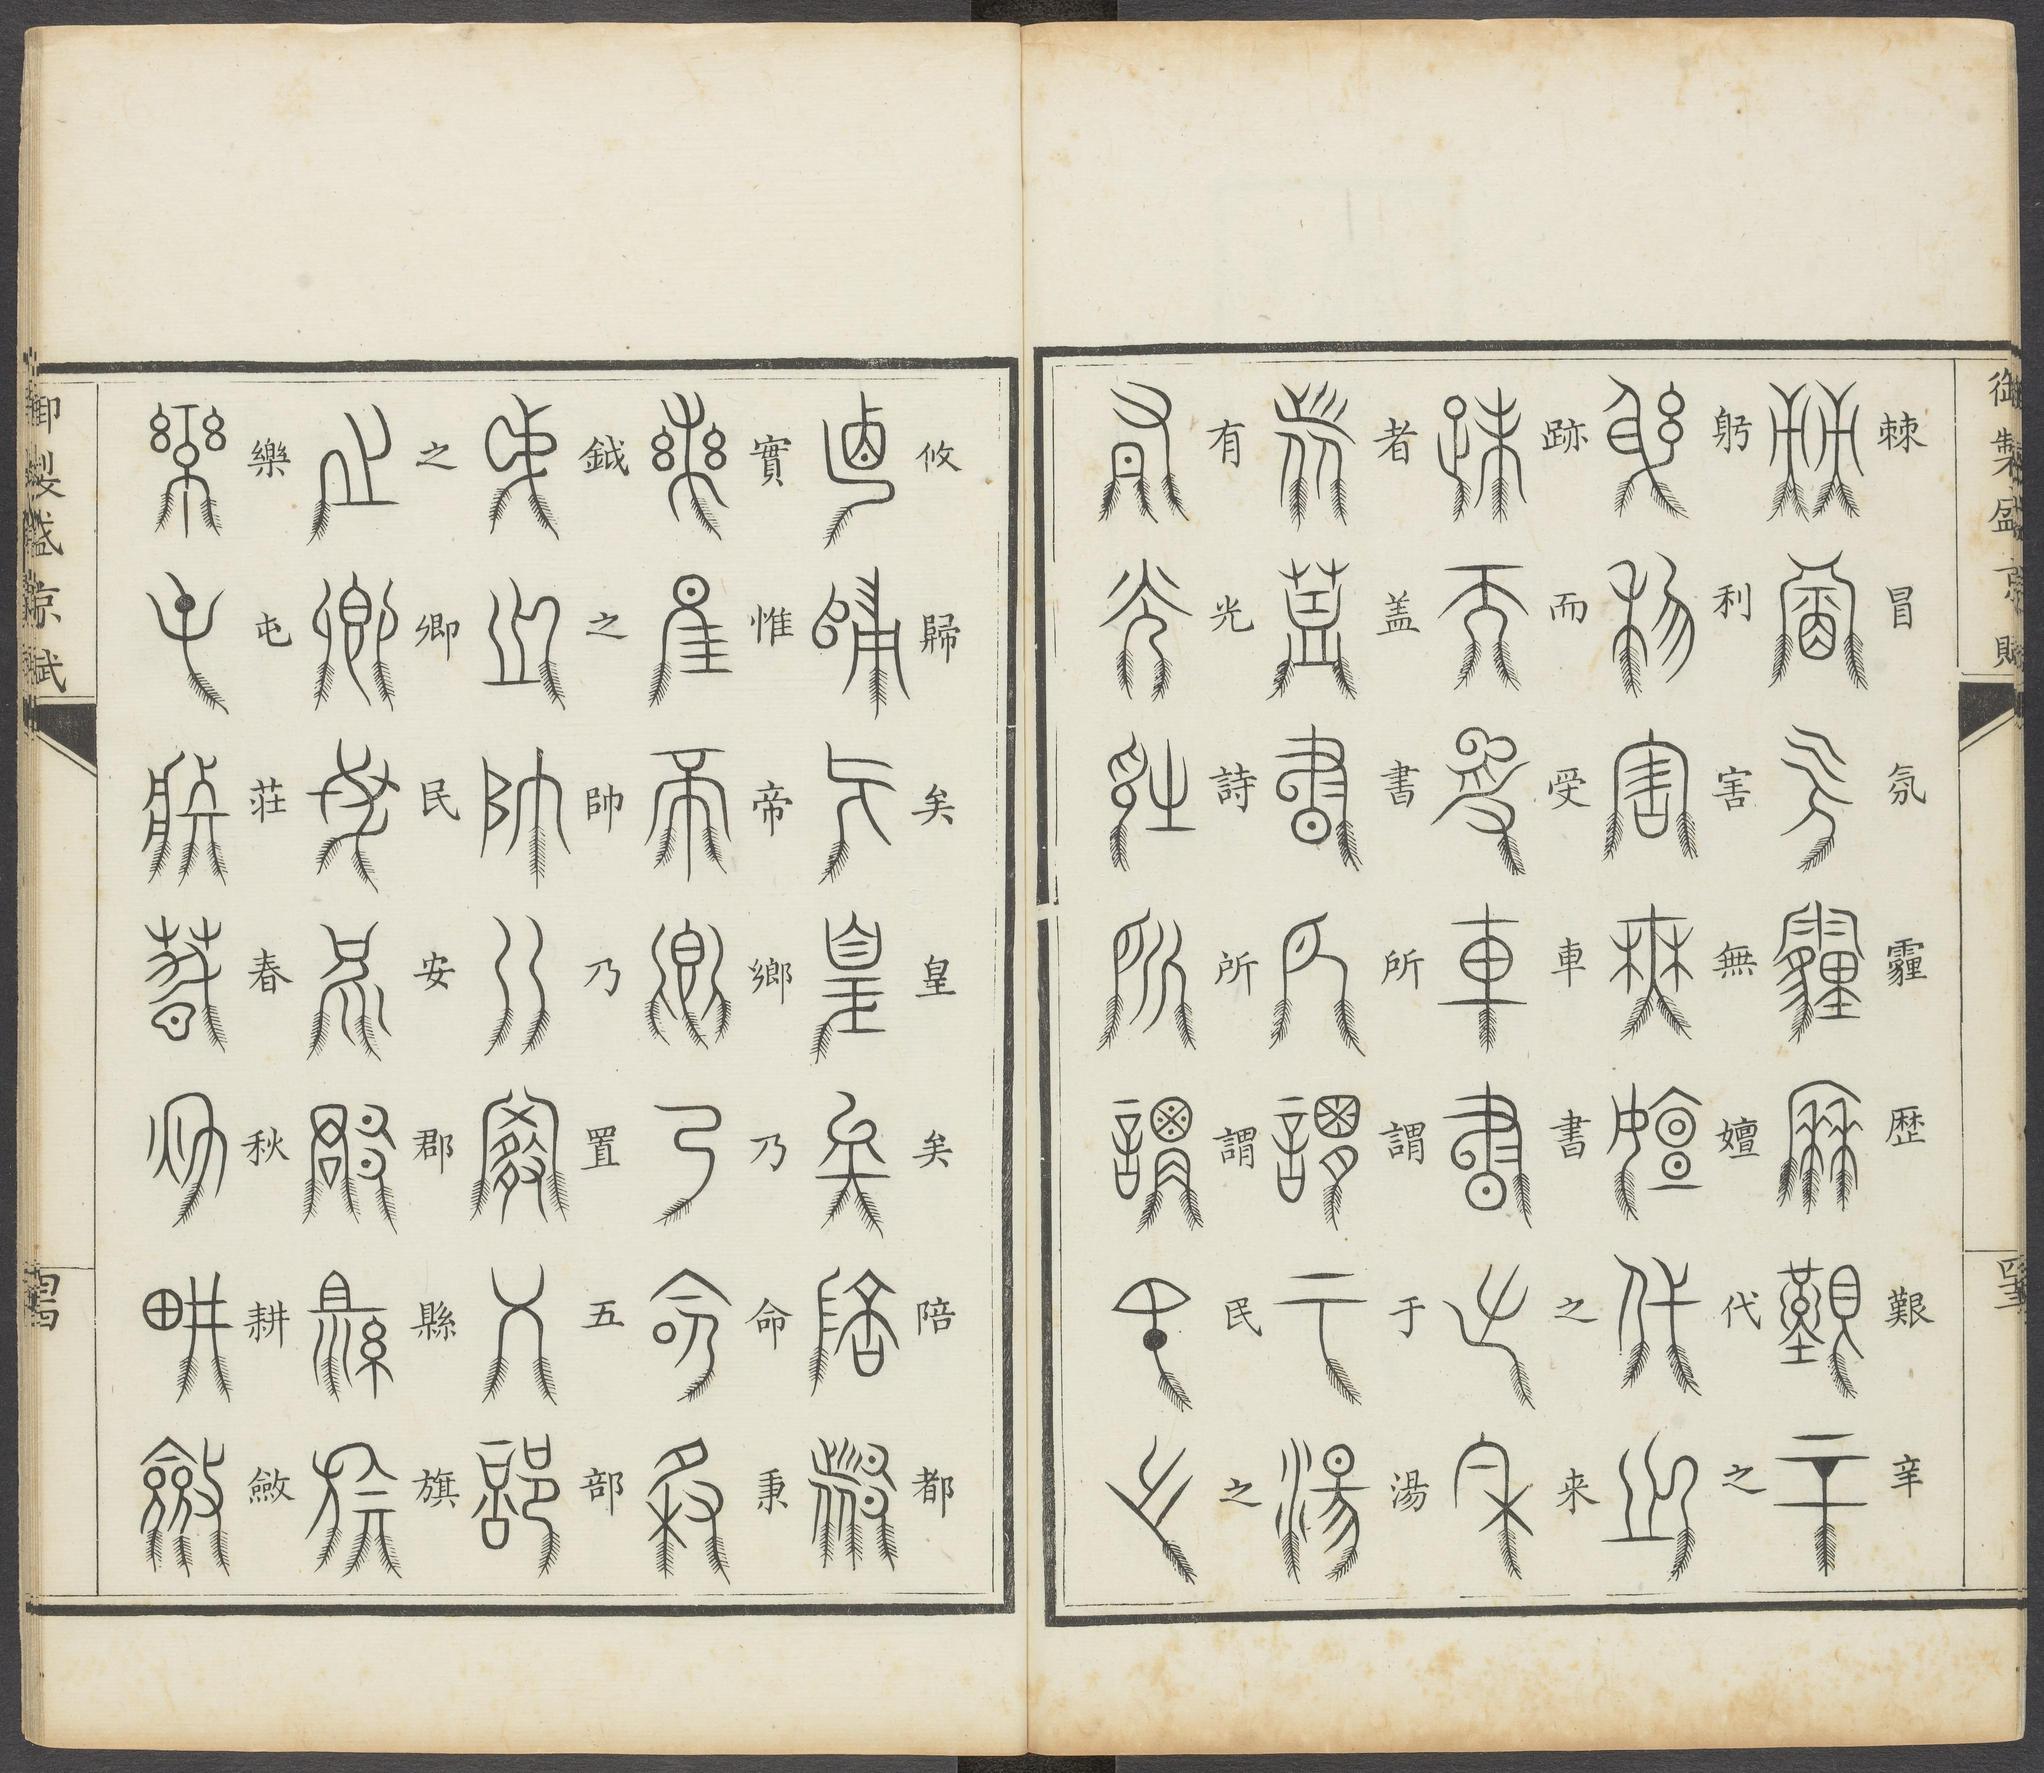 御製盛京賦
棘冒氛霾歷艱辛
躬利害無嬗代之
跡而受車書之来
者盖書所謂于湯
有光詩所謂民之
攸歸矣皇矣陪都
實惟帝鄉乃命秉
鉞之帥乃置五部
之卿民安郡縣旗
樂屯莊春秋耕斂
御製盛京賦